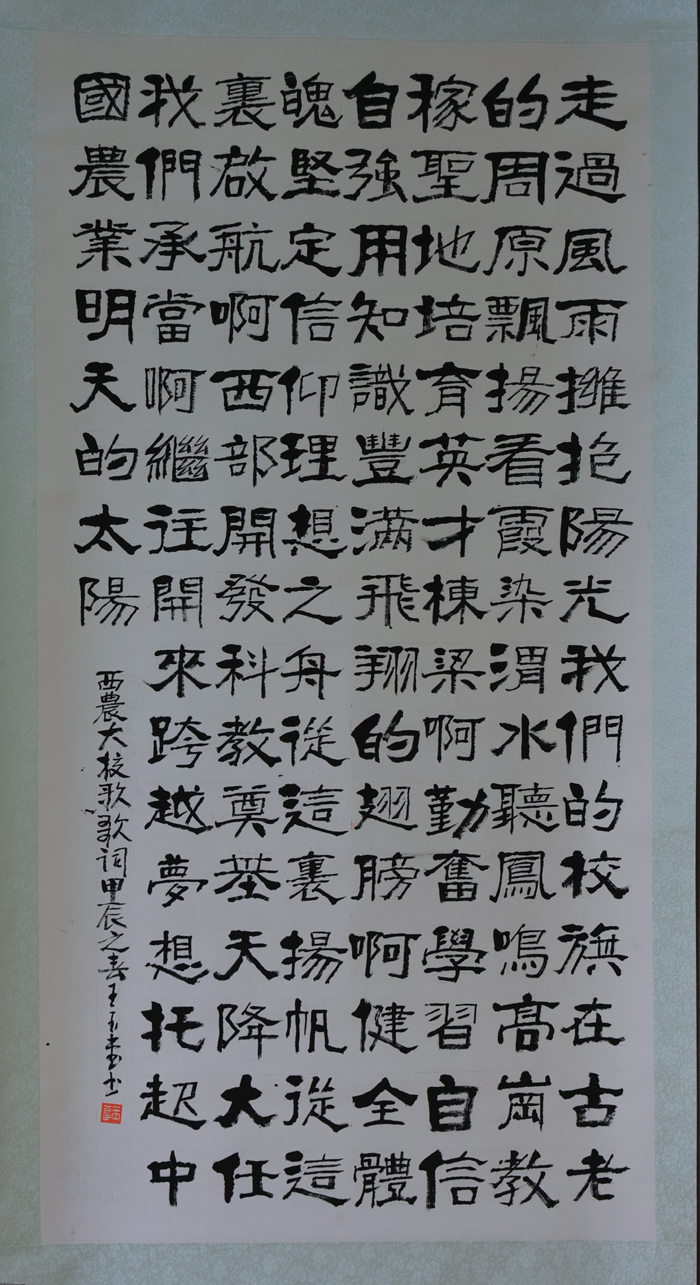 走過風雨擁抱陽光我們的校旗在古老
的周原飄揚看霞染渭水聽鳳鳴高崗教
稼聖地培育英才棟梁啊勤奮學習自信
自強用知識豐滿飛翔的翅膀啊健全體
魄堅定信仰理想之舟從這裏揚帆從這
裏啟航啊西部開發科教奠基天降大任
我們承當啊繼往開來跨越夢想托起中
國農業明天的太陽
西農大校歌歌詞甲辰之春王玉書